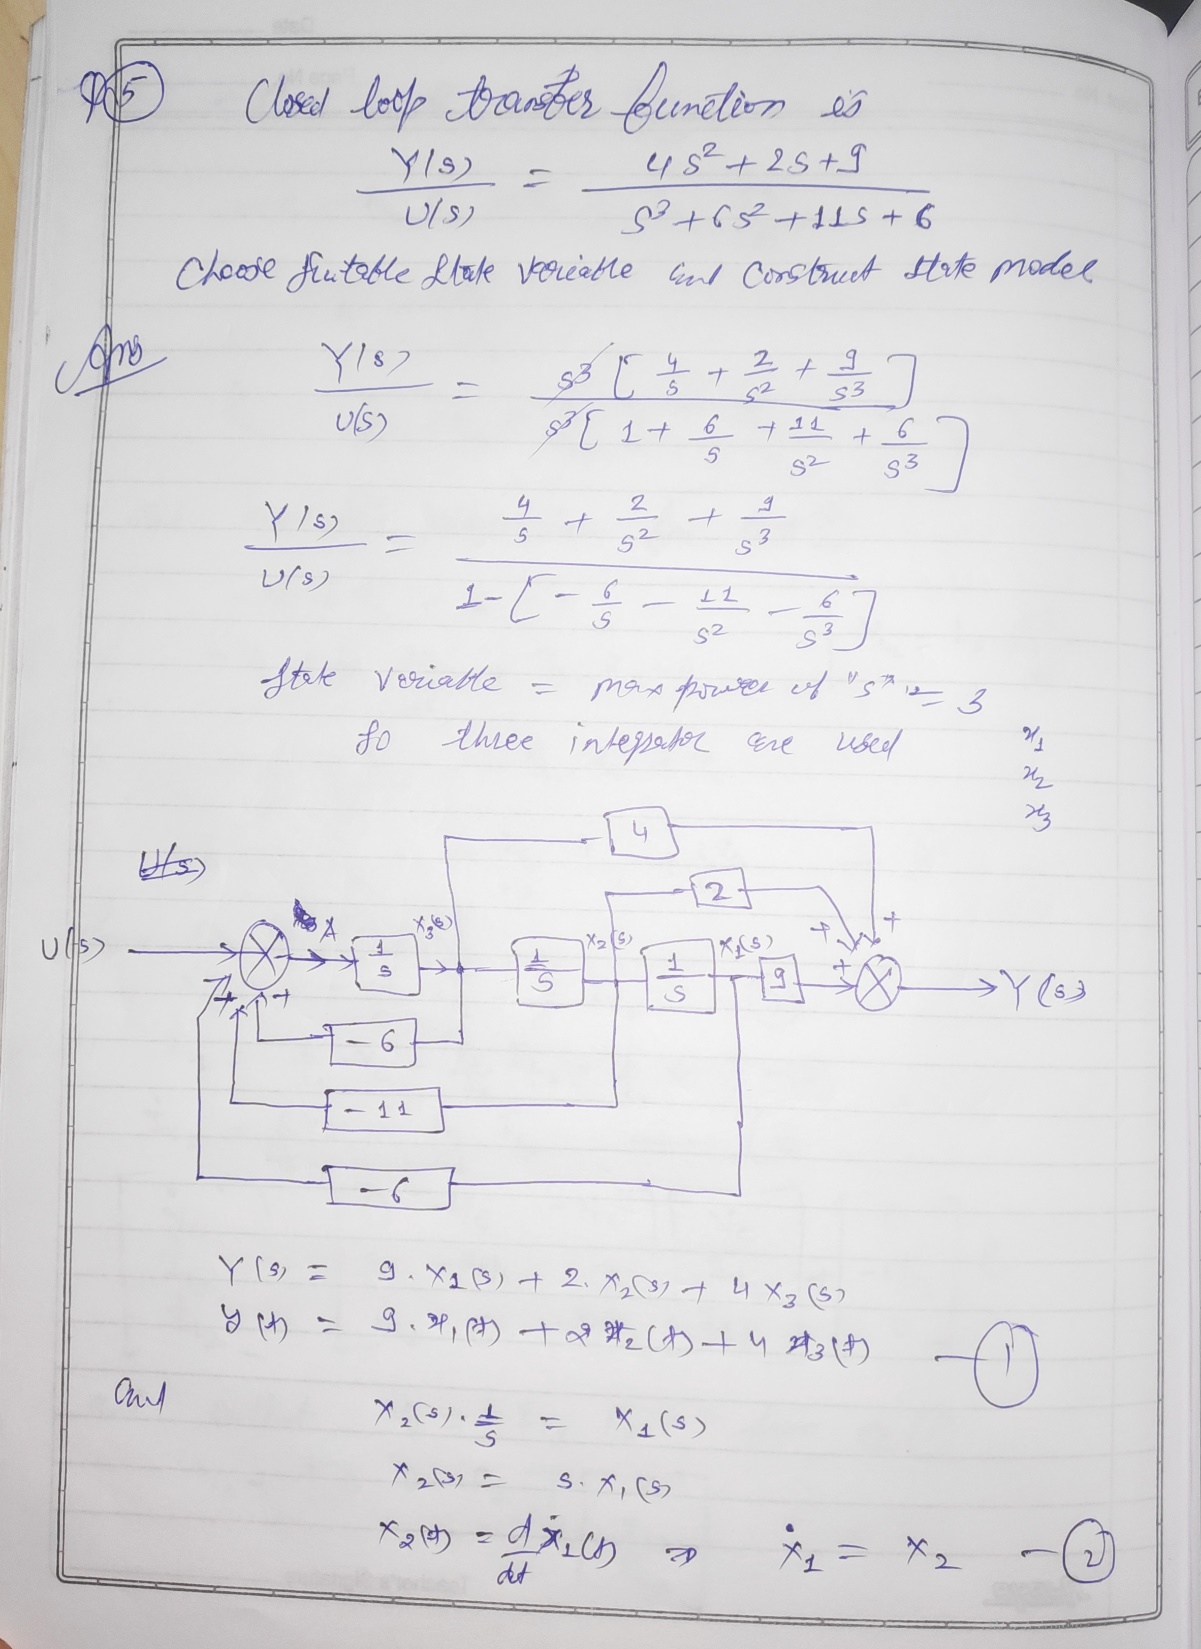 Q5 Closed loop transfer function is
Y(s)/U(s) = (4s² + 2s + 9)/(s³ + 6s² + 11s + 6)
Choose suitable state variable and construct state model
Ans Y(s)/U(s) = s³[4/s + 2/s² + 9/s³] / s³[1 + 6/s + 11/s² + 6/s³]
Y(s)/U(s) = (4/s + 2/s² + 9/s³) / (1 - [-6/s - 11/s² - 6/s³])
State variable = max power of "s" = 3
so three integrator are used
x₁
x₂
x₃
4
U(s)
2
U(s) A 1/s X₃(s) 1/s X₂(s) 1/s X₁(s) 9 + + + Y(s)
+ + +
-6
-11
-6
Y(s) = 9. X₁(s) + 2. X₂(s) + 4 X₃(s)
y(t) = 9. x₁(t) + 2 x₂(t) + 4 x₃(t) — 1
and X₂(s) . 1/s = X₁(s)
X₂(s) = s. X₁(s)
x₂(t) = d/dt ẋ₁(t) ⇒ ẋ₁ = x₂ — 2